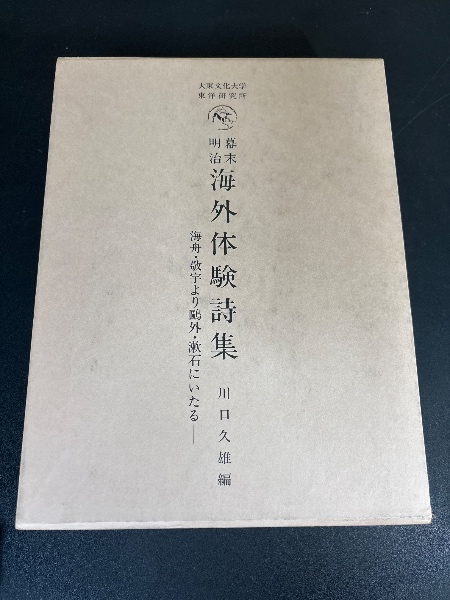 大東文化大学
東洋研究所
幕末
明治
海外体験詩集
海舟・敬宇より鷗外・漱石にいたる—
川口久雄編